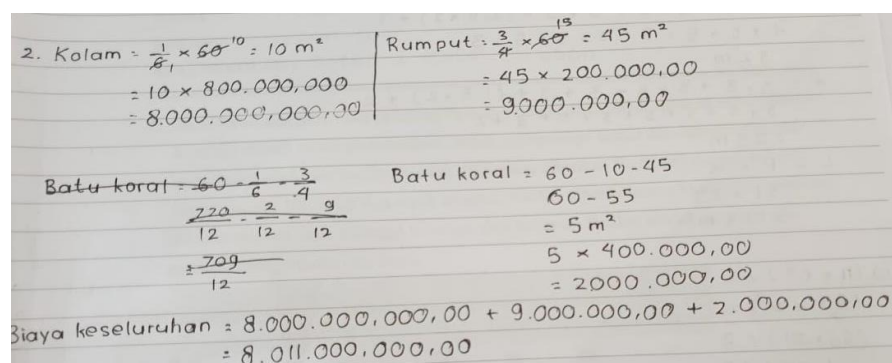 2. Kolam = 1/6 × 60 10 = 10 m²
1
= 10 × 800.000,000
= 8.000.000,000,00
Rumput = 3/4 × 60 15 = 45 m²
= 45 × 200.000,00
= 9.000.000,00
Batu koral = 60 - 1/6 - 3/4
720/12 - 2/12 - 9/12
= 709/12
Batu koral = 60 - 10 - 45
60 - 55
= 5 m²
5 × 400.000,00
= 2.000.000,00
Biaya keseluruhan = 8.000.000,000,00 + 9.000.000,00 + 2.000.000,00
= 8.011.000,000,00